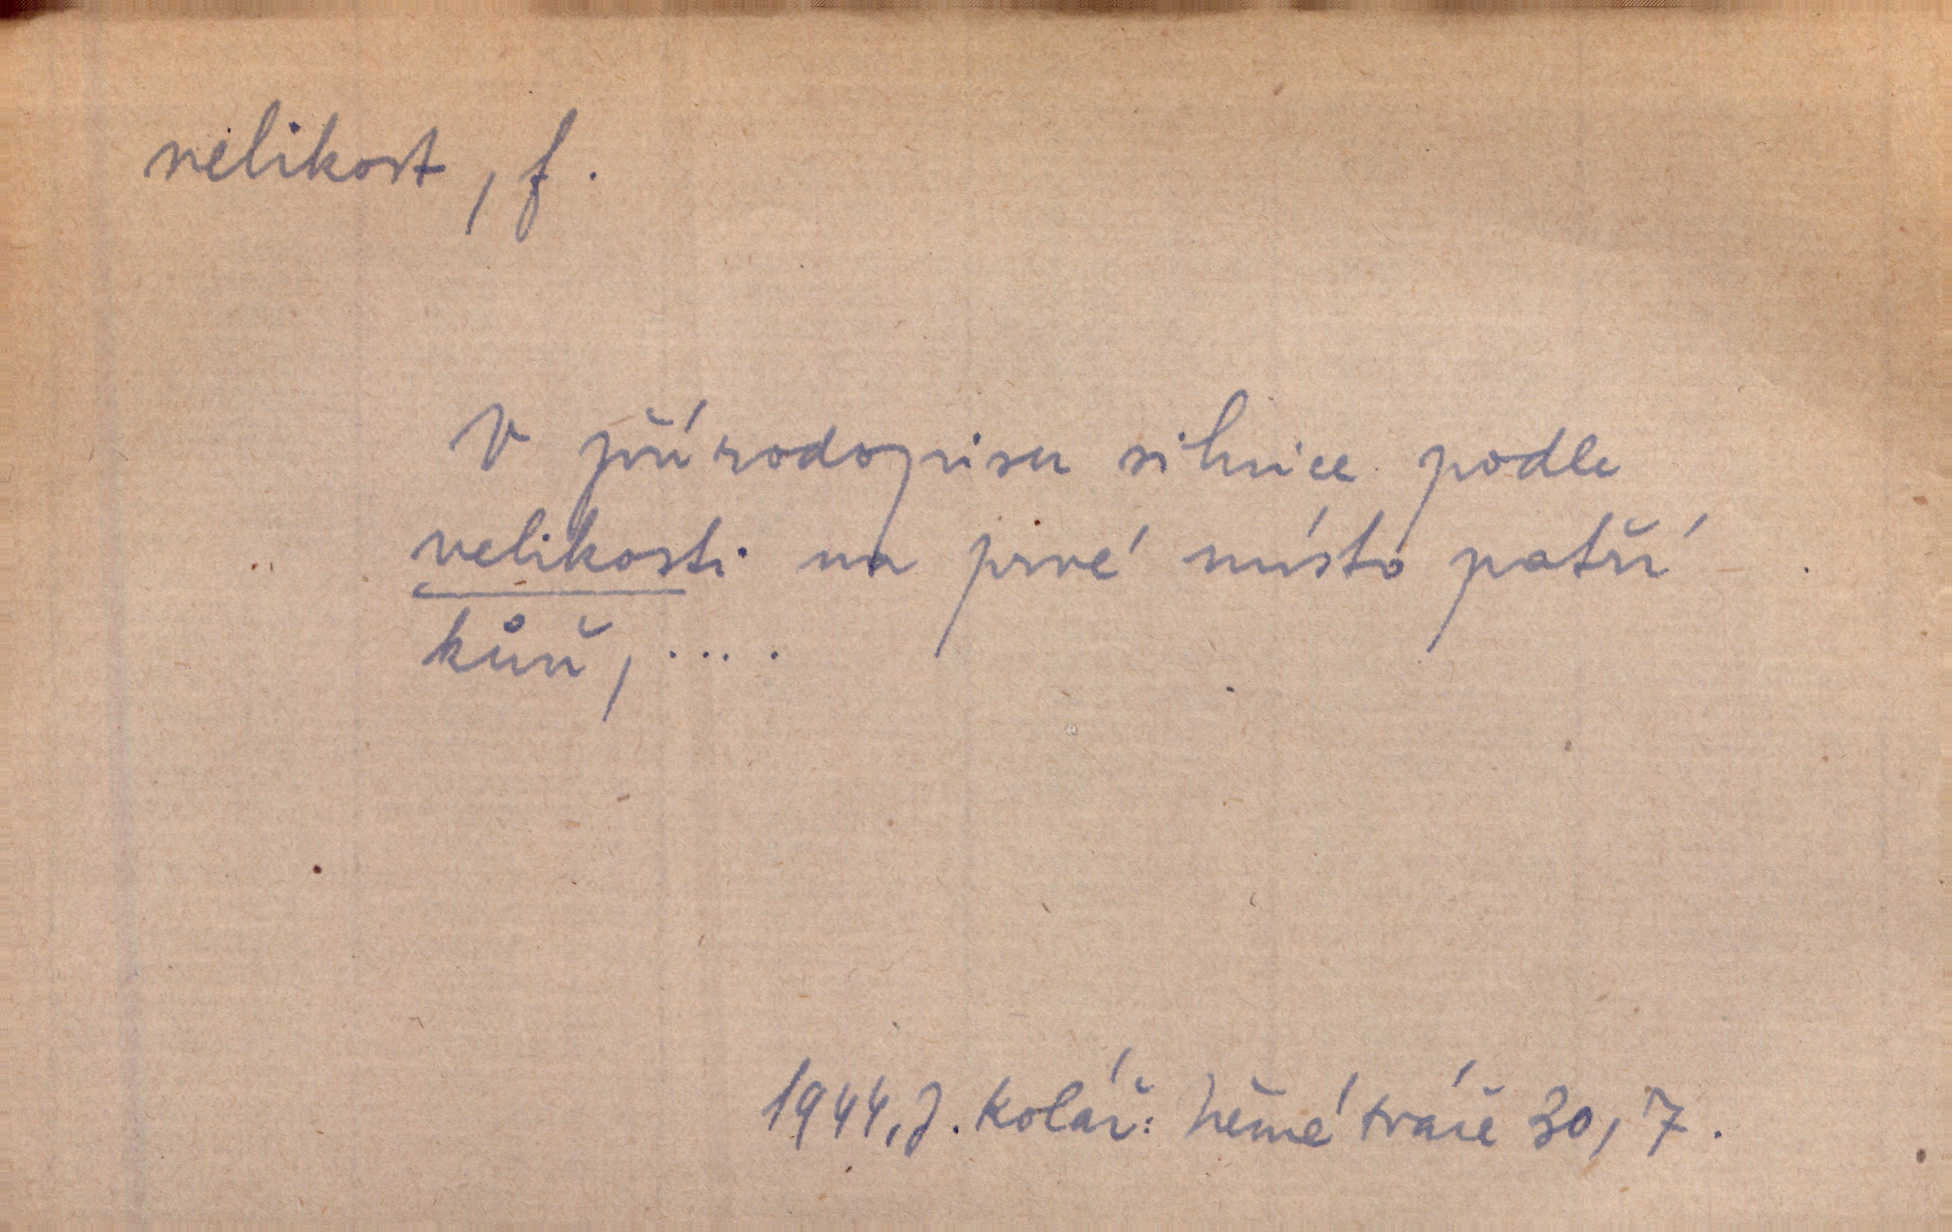 velikost, f.
V přírodopisu silnice podle
velikosti na prvé místo patří
kůň, ....
1944, J. Kolář: Němé tváře 30, 7.